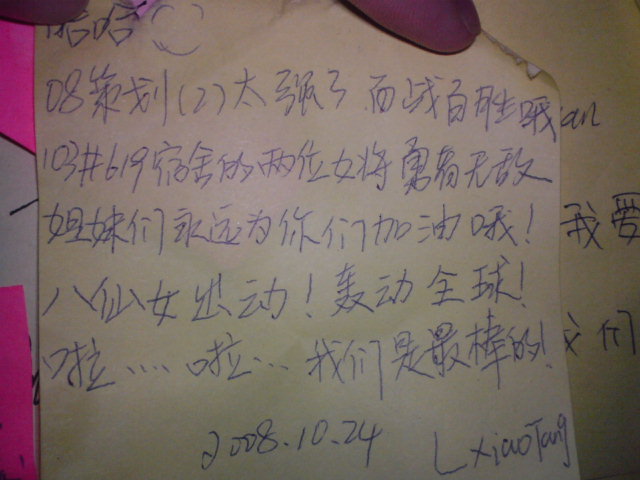 哈哈
08策划(2)太强了 百战百胜哦
103#619宿舍的两位女将 勇者无敌
姐妹们永远为你们加油哦!
我爱
八仙女出动! 轰动全球!
啦.... 啦... 我们是最棒的!
们
2008.10.24 L XiaoTang